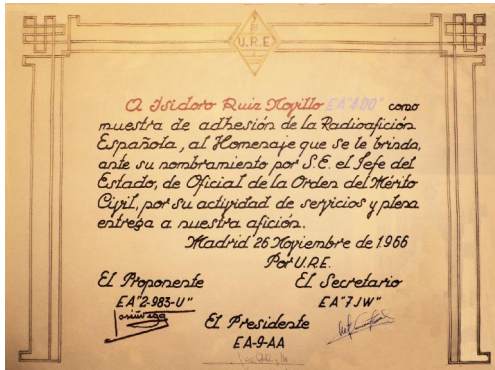 U.R.E
A Isidoro Ruiz Moyillo EA"4DO" como
muestra de adhesión de la Radioafición
Española, al Homenaje que se le brinda,
ante su nombramiento por S.E. el Jefe del
Estado, de Oficial de la Orden del Mérito
Civil, por su actividad de servicios y plena
entrega a nuestra afición.
Madrid 26 Noviembre de 1.966
Por U.R.E.
El Proponente El Secretario
EA"2-983-U" EA"7JW"
El Presidente
EA-9-AA